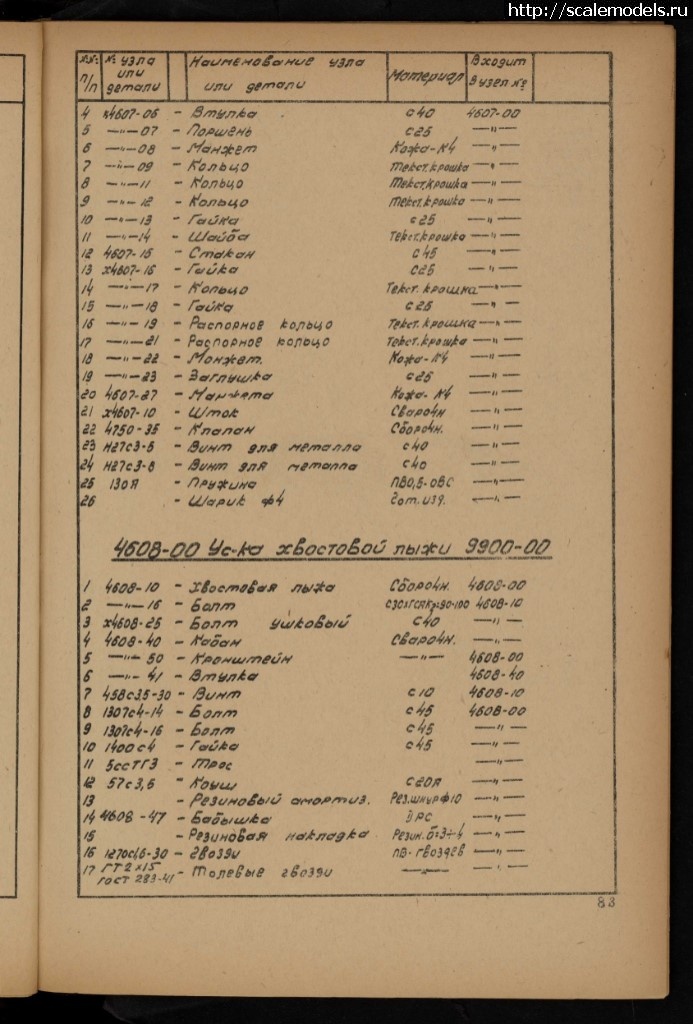 http://scalemodels.ru
№№ п/п № узла или детали Наименование узла или детали Материал Входит в узел №
4 х4607-06 - Втулка с40 4607-00
5 —"— 07 - Поршень с25 —"—
6 —"— 08 - Манжет Кожа-К4 —"—
7 —"— 09 - Кольцо Текст.крошка —"—
8 —"— 11 - Кольцо Текст.крошка —"—
9 —"— 12 - Кольцо Текст.крошка —"—
10 —"— 13 - Гайка с25 —"—
11 —"— 14 - Шайба Текст.крошка —"—
12 4607-15 - Стакан с45 —"—
13 х4607-16 - Гайка с25 —"—
14 —"— 17 - Кольцо Текст.крошка —"—
15 —"— 18 - Гайка с25 —"—
16 —"— 19 - Распорное кольцо Текст.крошка —"—
17 —"— 21 - Распорное кольцо Текст.крошка —"—
18 —"— 22 - Манжет. Кожа-К4 —"—
19 —"— 23 - Заглушка с25 —"—
20 4607-27 - Манжета Кожа-К4 —"—
21 х4607-10 - Шток Сварочн —"—
22 4750-35 - Клапан Сборочн. —"—
23 Н27с3-5 - Винт для металла с40 —"—
24 Н27с3-8 - Винт для металла с40 —"—
25 130Я - Пружина ПВ0,5-ОВС —"—
26 - Шарик ф4 Гот.изд. —"—
4608-00 Ус-ка хвостовой лыжи 9900-00
1 4608-10 - Хвостовая лыжа Сборочн. 4608-00
2 —"— 16 - Болт 4608-10
3 х4608-25 - Болт ушковый с40 —"—
4 4608-40 - Кабан Сварочн. —"—
5 —"— 50 - Кронштейн —"— 4608-00
6 —"— 41 - Втулка 4608-40
7 458с3,5-30 - Винт с10 4608-10
8 1307с4-14 - Болт с45 4608-00
9 1307с4-16 - Болт с45 —"—
10 1400с4 - Гайка с45 —"—
11 5ссТГ3 - Трос —"—
12 57с3,5 - Коуш с20Я —"—
13 - Резиновый амортиз. Рез.шнур ф10 —"—
14 4608-47 - Бабышка —"—
15 - Резиновая накладка Резин. —"—
16 1270с1,6-30 - Гвозди ПВ-гвоздев —"—
17 ГТ2х15 ГОСТ 283-41 - Толевые гвозди —"— —"—
83